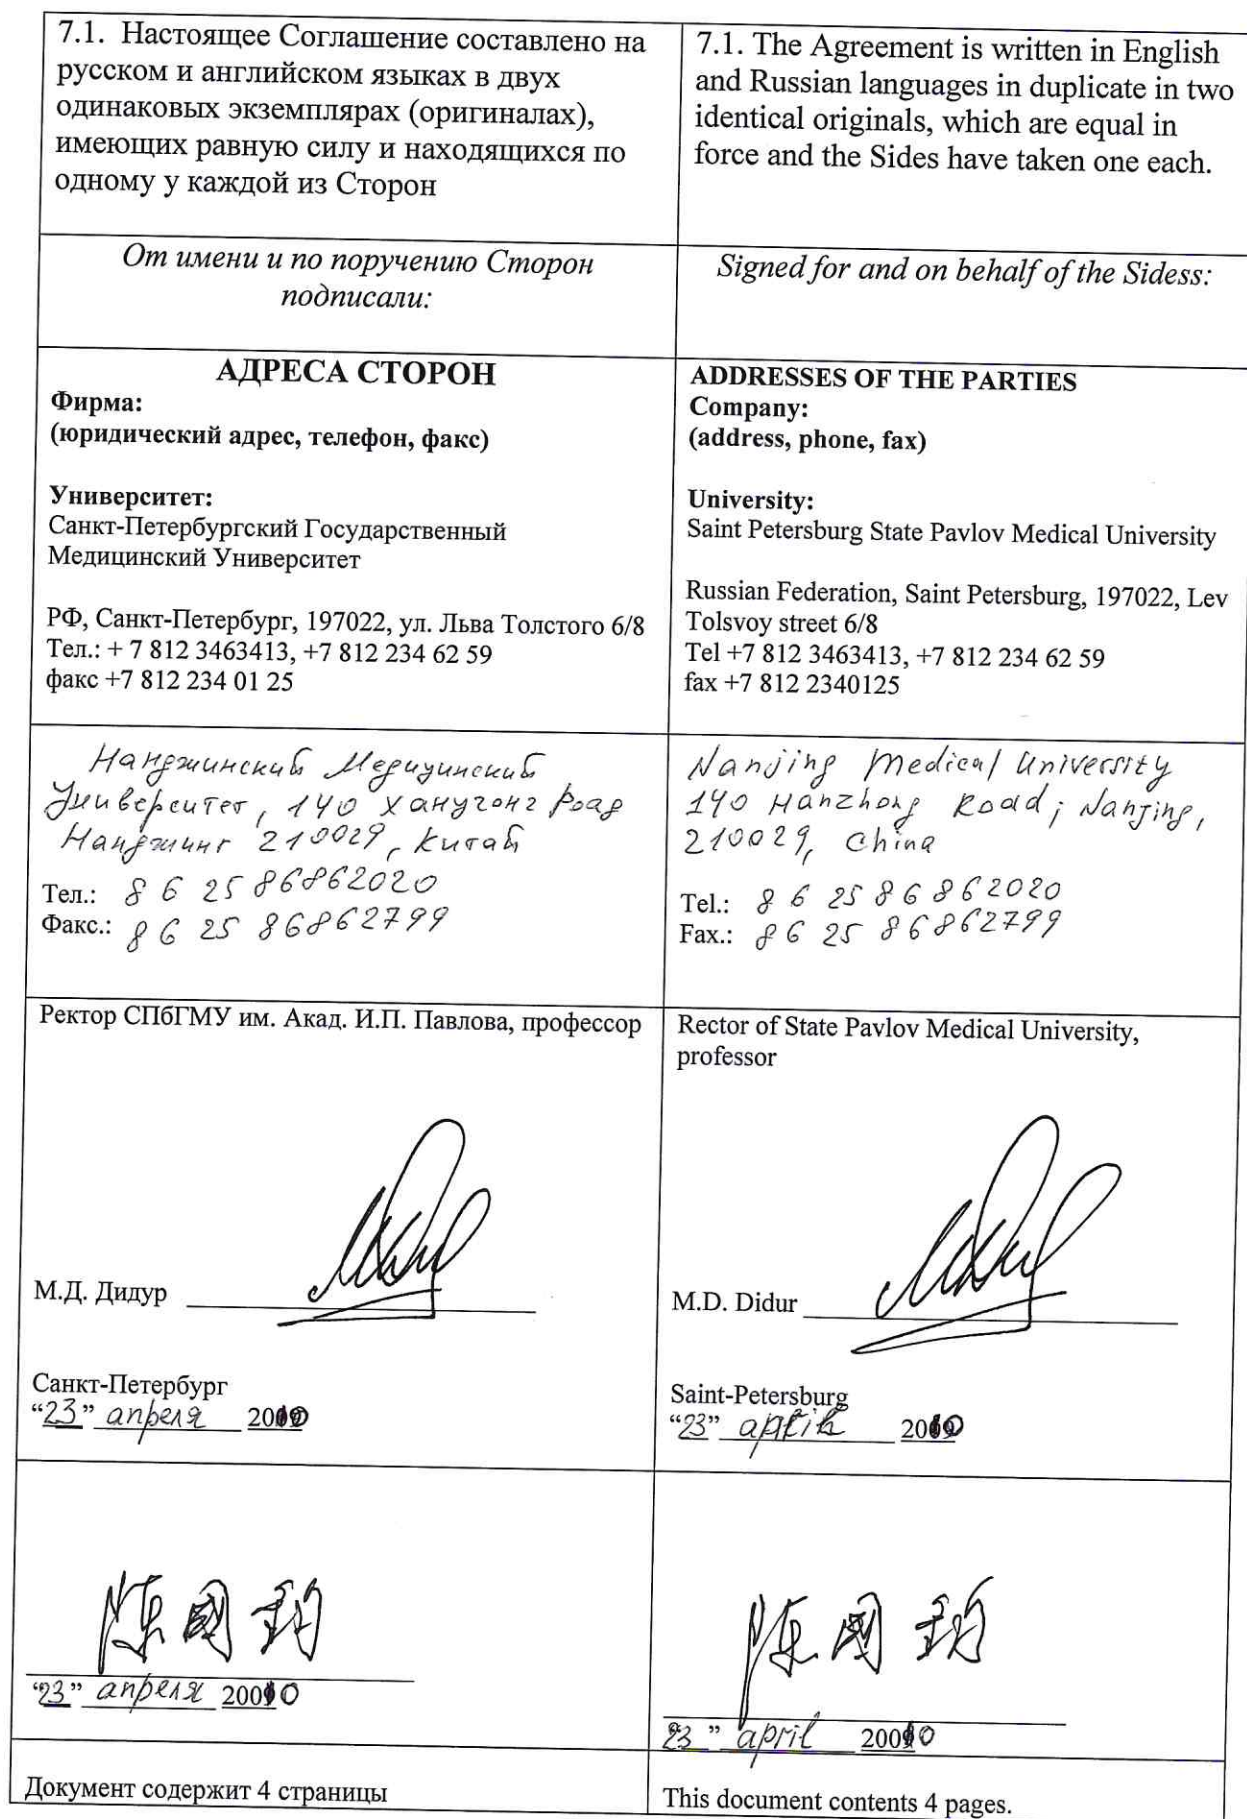 7.1. Настоящее Соглашение составлено на
русском и английском языках в двух
одинаковых экземплярах (оригиналах),
имеющих равную силу и находящихся по
одному у каждой из Сторон
7.1. The Agreement is written in English
and Russian languages in duplicate in two
identical originals, which are equal in
force and the Sides have taken one each.
От имени и по поручению Сторон
подписали:
Signed for and on behalf of the Sidess:
АДРЕСА СТОРОН
Фирма:
(юридический адрес, телефон, факс)
Университет:
Санкт-Петербургский Государственный
Медицинский Университет
РФ, Санкт-Петербург, 197022, ул. Льва Толстого 6/8
Тел.: + 7 812 3463413, +7 812 234 62 59
факс +7 812 234 01 25
ADDRESSES OF THE PARTIES
Company:
(address, phone, fax)
University:
Saint Petersburg State Pavlov Medical University
Russian Federation, Saint Petersburg, 197022, Lev
Tolsvoy street 6/8
Tel +7 812 3463413, +7 812 234 62 59
fax +7 812 2340125
Нанджинский Медицинский
Университет, 140 Ханугонг Роад
Нанджинг 210029, Китай
Тел.: 86 25 86862020
Факс.: 86 25 86862799
Nanjing Medical University
140 Hanzhong Road, Nanjing,
210029, China
Tel.: 86 25 86862020
Fax.: 86 25 86862799
Ректор СПбГМУ им. Акад. И.П. Павлова, профессор
М.Д. Дидур
Санкт-Петербург
“23” апреля 2010
Rector of State Pavlov Medical University,
professor
M.D. Didur
Saint-Petersburg
“23” april 2010
陈國钧
“23” апреля 2010
陈國钧
“23” april 2010
Документ содержит 4 страницы
This document contents 4 pages.